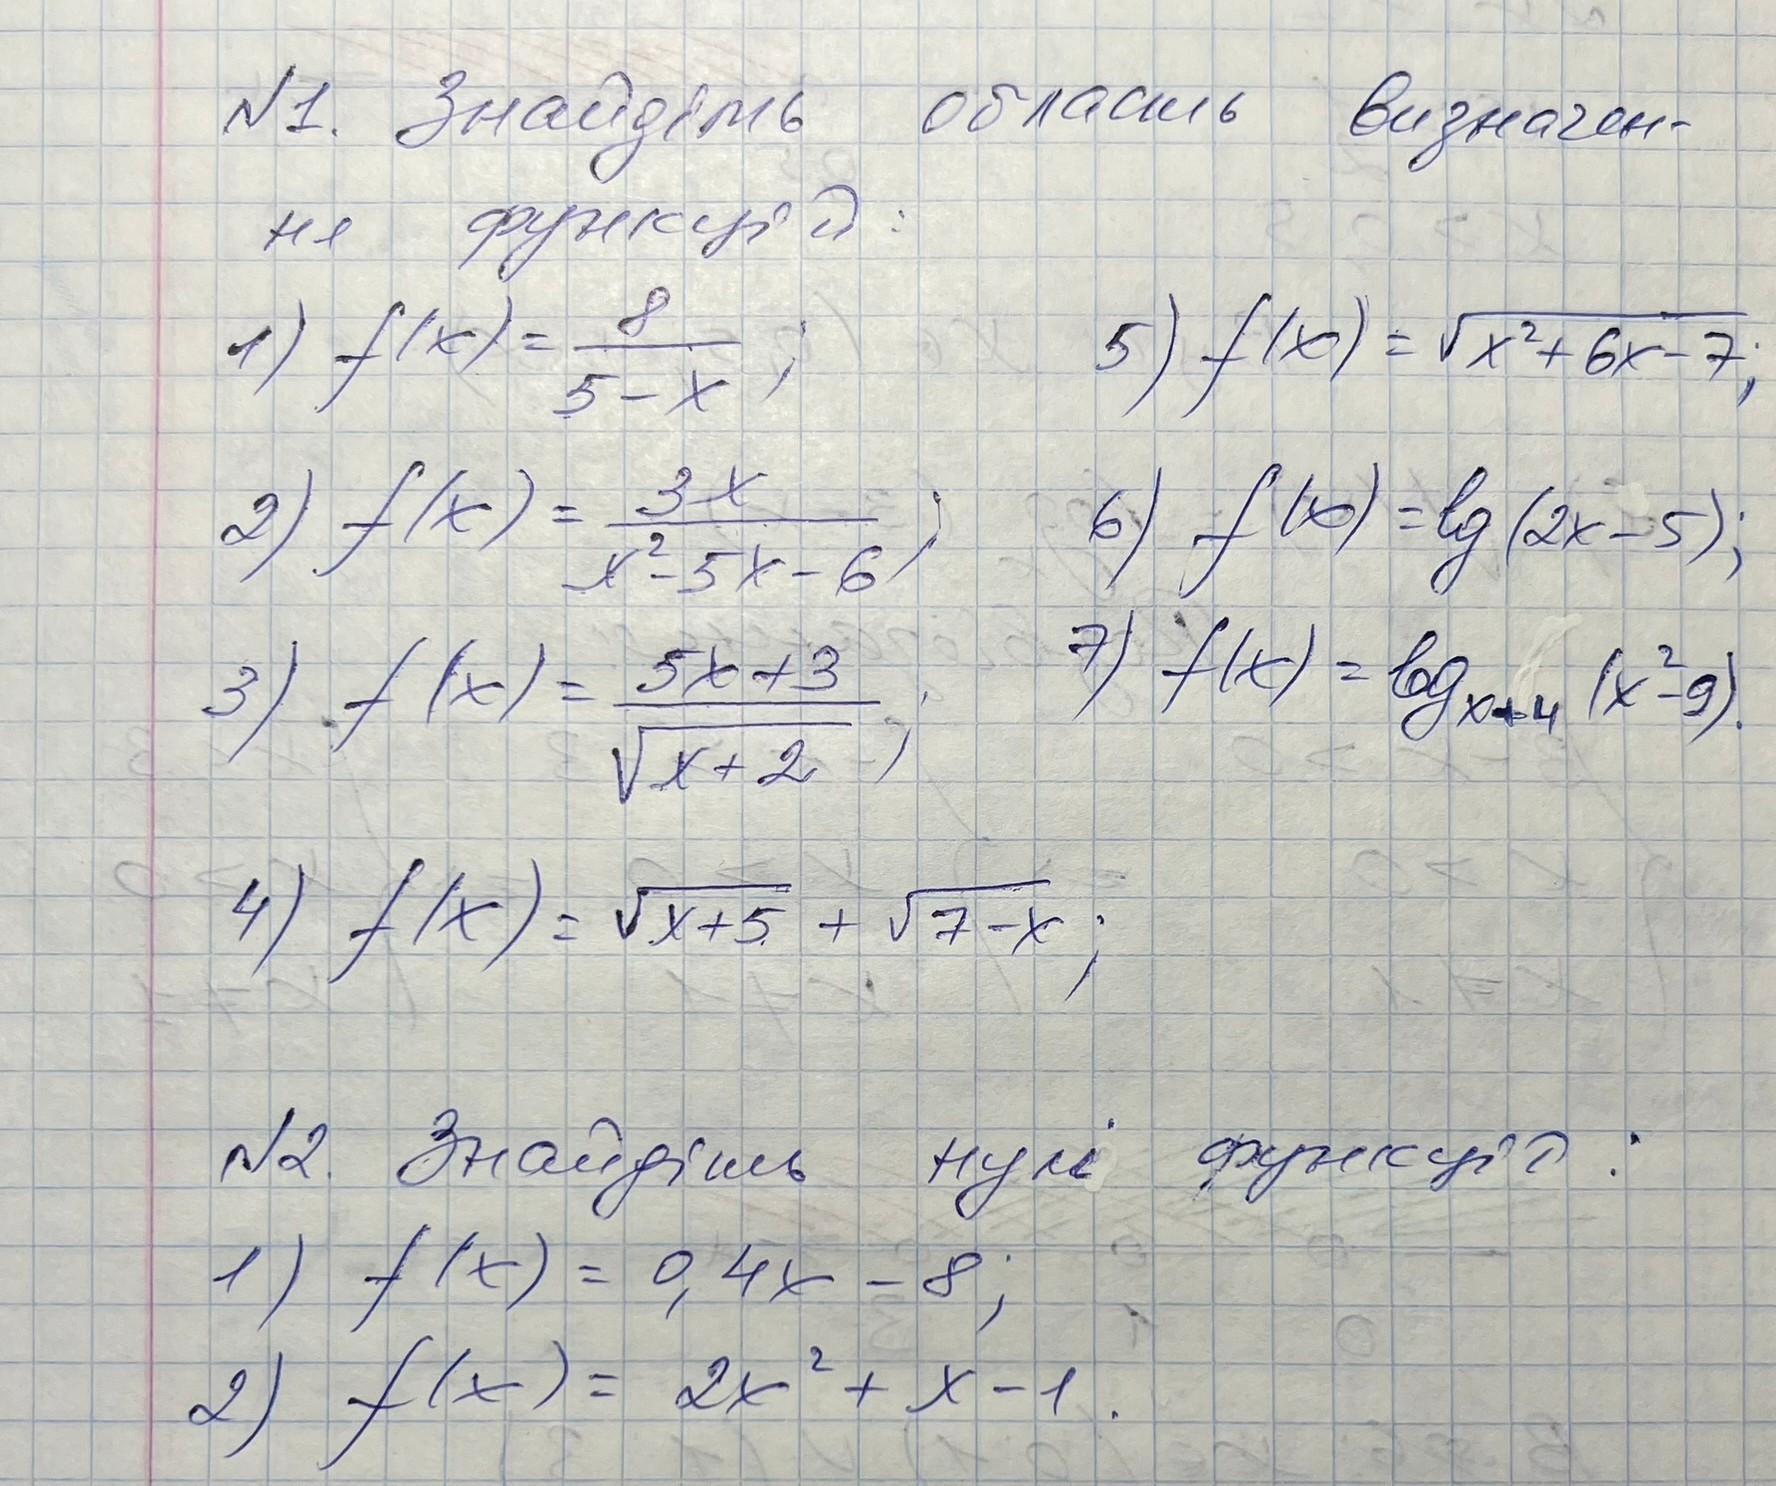 №1. Знайдіть область визначен-
ня функцій:
1) f(x) = 8/(5-x);
2) f(x) = 3x/(x²-5x-6);
3) f(x) = (5x+3)/√(x+2);
4) f(x) = √(x+5) + √(7-x);
5) f(x) = √(x²+6x-7);
6) f(x) = lg(2x-5);
7) f(x) = log_{x+4}(x²-9).
№2. Знайдіть нулі функцій:
1) f(x) = 0,4x - 8;
2) f(x) = 2x² + x - 1.